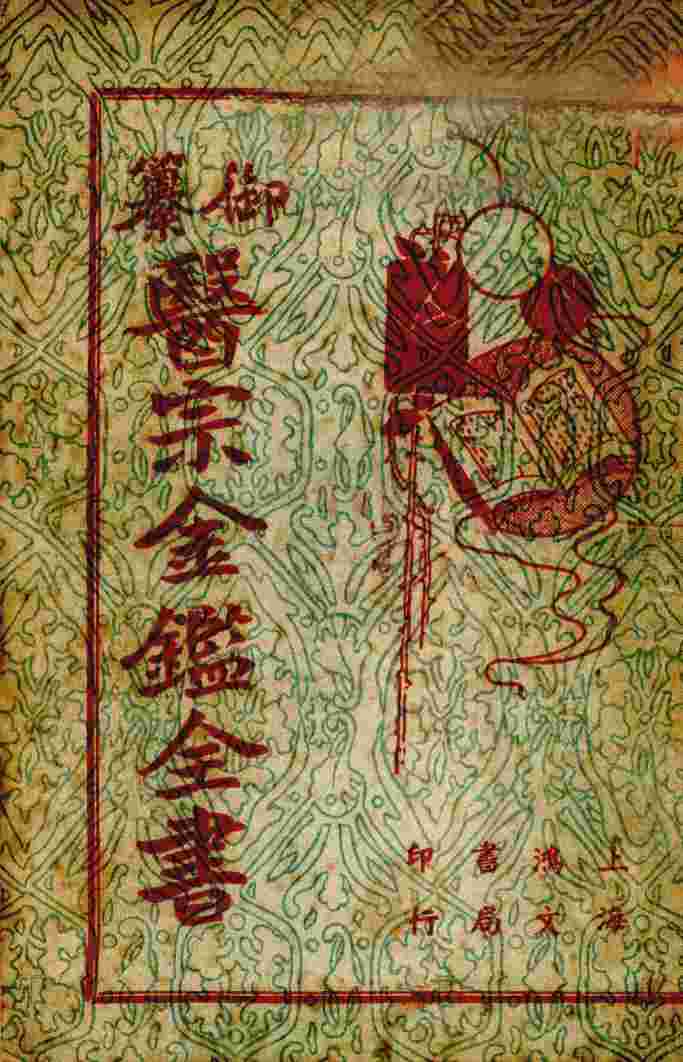 御纂
醫宗金鑑全書
上海
鴻文
書局
印行